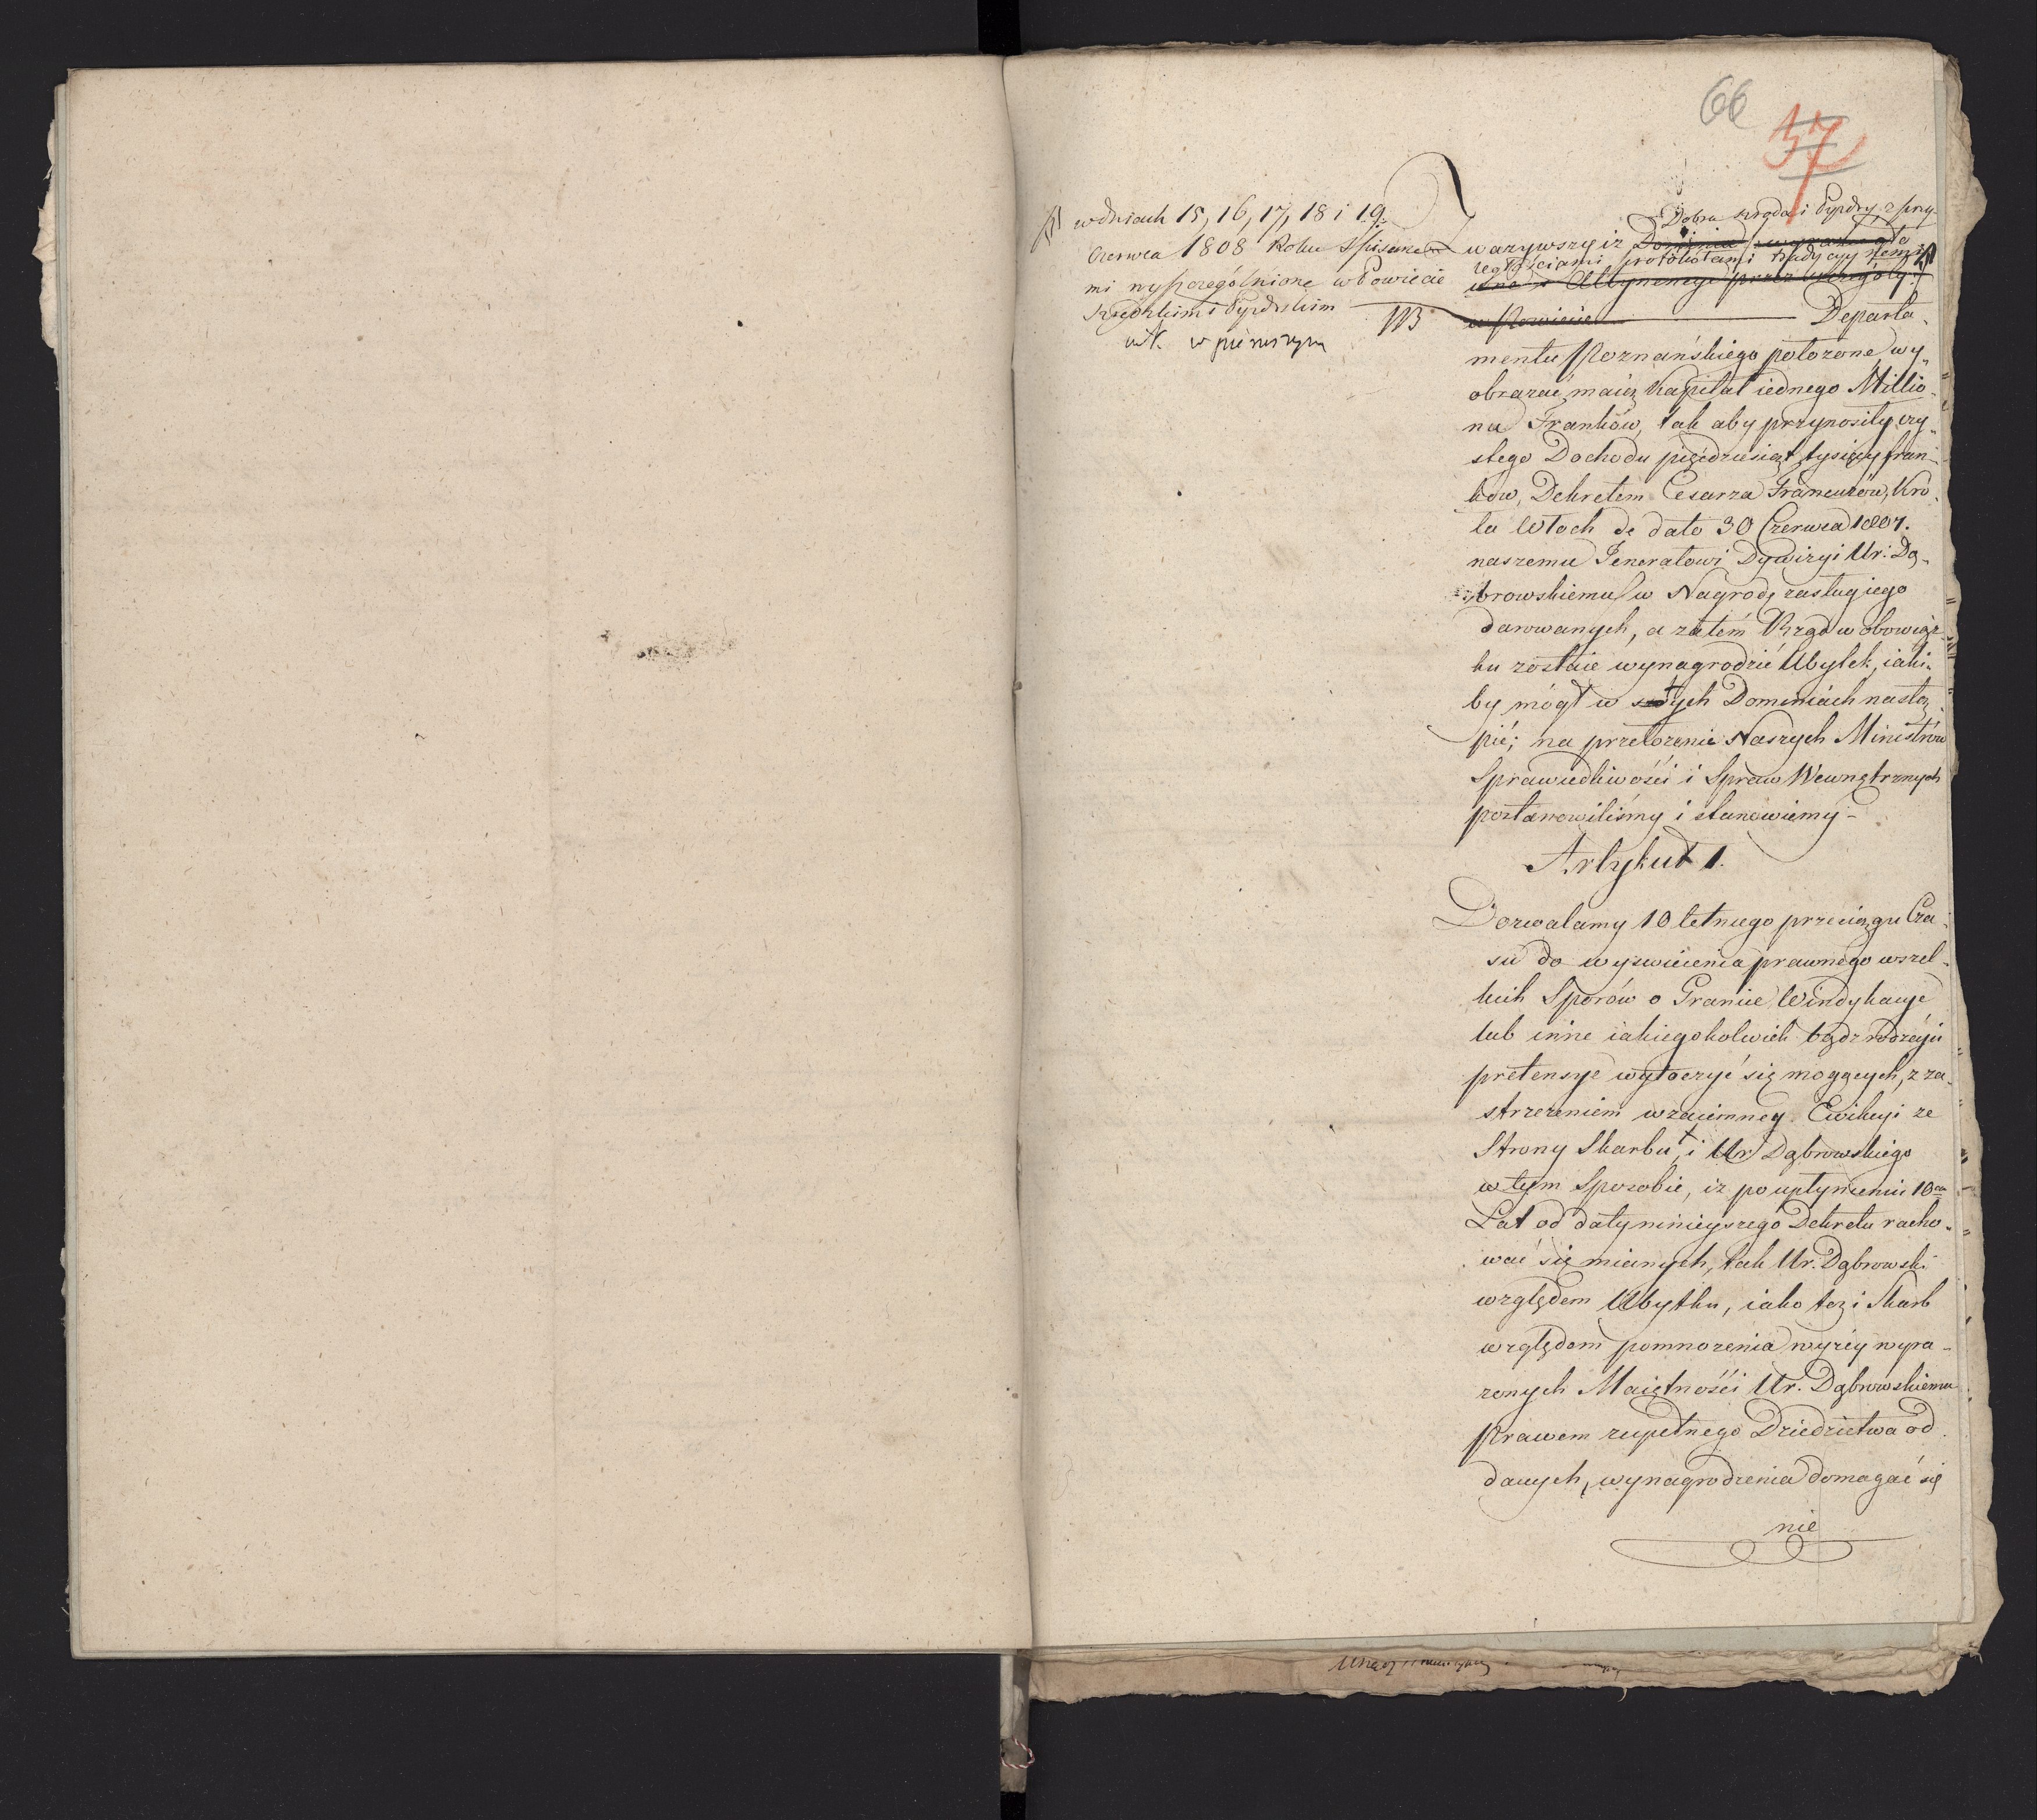 66
37
w dniach 15, 16, 17, 18 i 19
Czerwca 1808 Roku spisane
mi wyszczególnione w Powiecie
Srzedzkim i Pyzdrskim
w pierwszym
Dobra szroda i Pyzdry z przy
Zważywszy iż Dominia
ległościami protokołami tradycyynemi
w Powiecie Departa„
mentu Poznańskiego położone, wy„
obrazać maią Kapitał iednego Millio„
na Franków, tak aby przynosiły czy„
stego Dochodu pięćdziesiąt tysięcy fran„
ków, Dekretem Cesarza Francuzów, Kró„
la Włoch de dato 30 Czerwca 1807.
naszemu Jenerałowi Dywizyi Ur: Dą„
browskiemu w Nagrodę zasług iego
darowanych, a zatém Rząd w obowiąz„
ku zostaie wynagrodzić Ubytek, iaki„
by mógł w tych Dominiach nastą„
pić; na przełożenie Naszych Ministrów
Sprawiedliwości i Spraw Wewnętrznych
postanowiliśmy i stanowiemy –
Artykuł 1.
Dozwalamy 10 letniego przeciągu Cza„
su do wyświecenia prawnego wszel„
kich Sporów o Granice, Windykacye
lub inne iakiegokolwiek bądz rodzaju
pretensye wytoczyć się mogących, z za„
strzeżeniem wzaiemney Ewikcyi ze
Strony Skarbu i Ur Dąbrowskiego
w tym Sposobie, iż po upłynieniu 10ciu
Lat od daty ninieyszego Dekretu racho„
wać się mianych, tak Ur. Dąbrowski
względem Ubytku, iako też i Skarb
względem pomnożenia wyżéy wyra„
żonych Maiętności Ur. Dąbrowskiemu
Prawem zupełnego Dziedzictwa od
danych, wynagrodzenia domagać się
nie